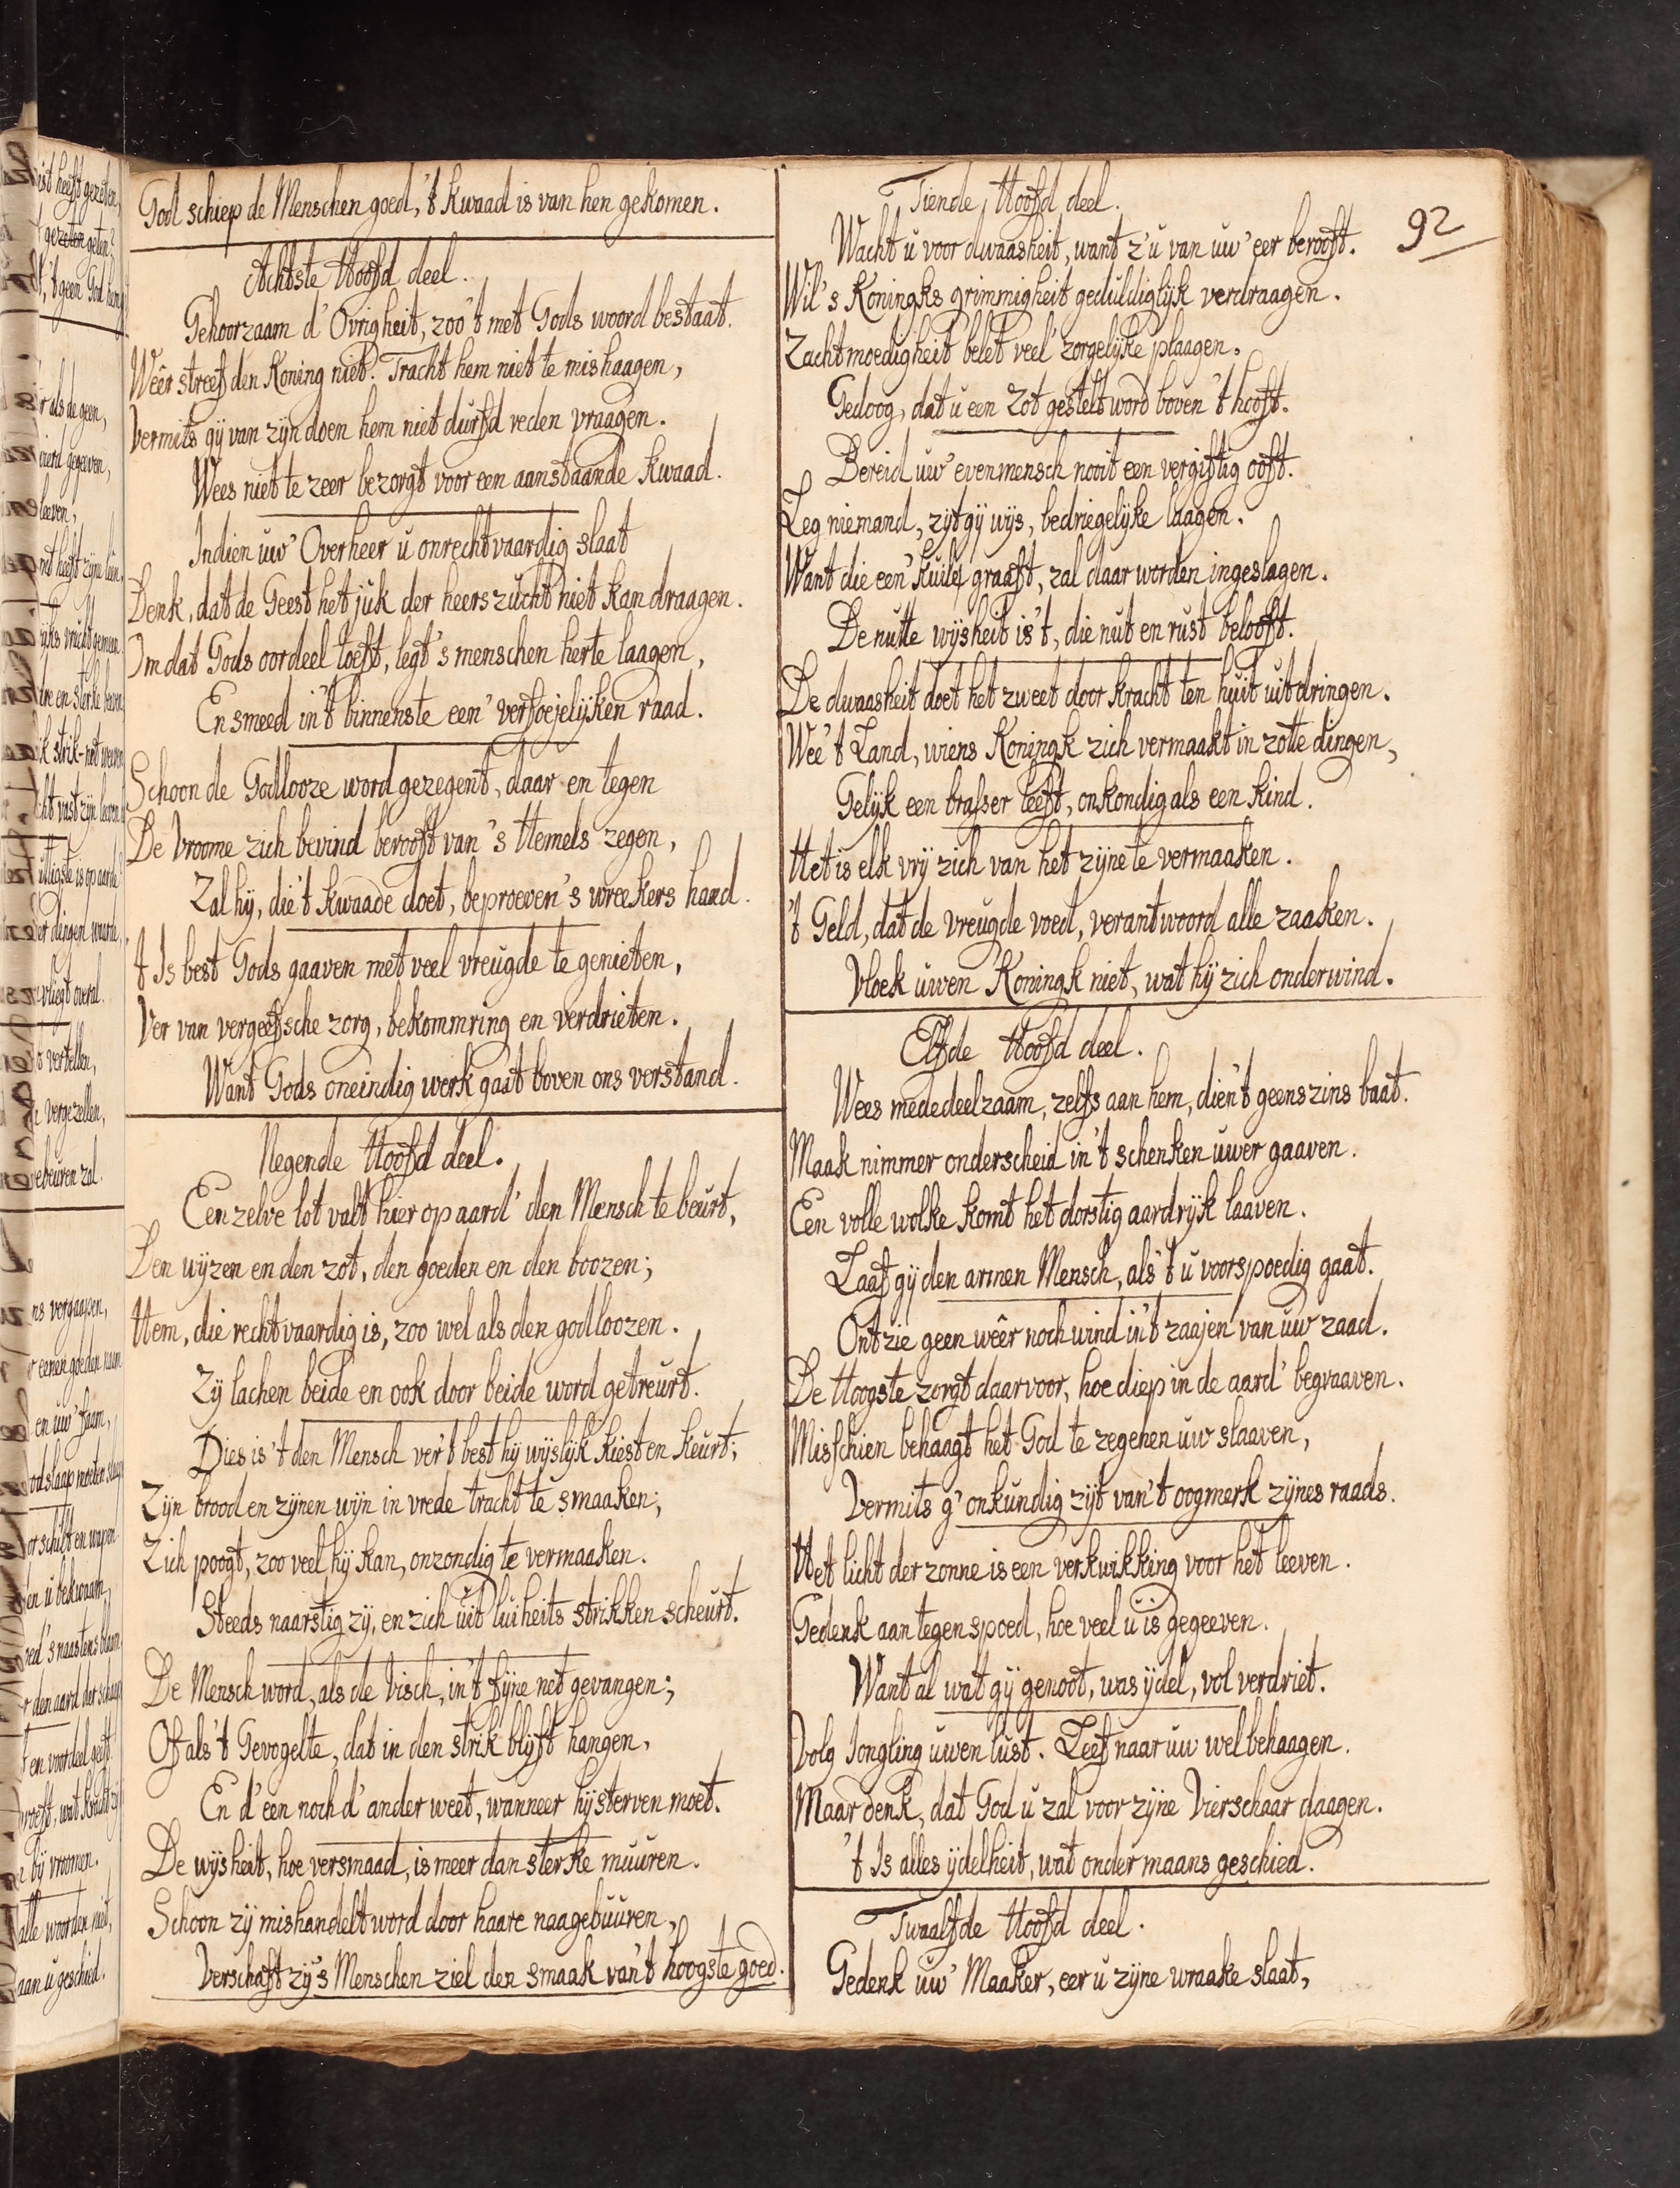 God schiep de Menschen goed, 't kwaad is van hen gekomen.
Achtste Hoofd deel.
Gehoorzaam d' Ovrigheit, zoo 't met Gods woord bestaat.
Weêrstreef den Koning niet. Tracht hem niet te mishaagen,
Vermits gij van zijn doen hem niet durfd reden vraagen.
Wees niet te zeer bezorgt voor een aanstaande kwaad.
Indien uw' Overheer u onrechtvaardig slaat
Denk, dat de Geest het juk der heerszucht niet kan draagen.
Omdat Gods oordeel toeft, legt 's menschen herte laagen,
En smeed in 't binnenste een' verfoejelijken raad.
Schoon de Godlooze word gezegent, daar en tegen
De Vroome zich bevind berooft van 's Hemels zegen,
Zal hij, die 't kwaade doet, beproeven 's wreekers hand.
't Is best Gods gaaven met veel vreugde te genieten,
Ver van vergeefsche zorg, bekommring en verdrieten.
Want Gods oneindig werk gaat boven ons verstand.
Negende Hoofd deel.
Een zelve lot valt hier op aard' den Mensch te beurt,
Den wijzen en den zot, den goeden en den boozen;
Hem, die rechtvaardig is, zoo wel als den godloozen.
Zij lachen beide en ook door beide word getreurt.
Dies is 't den Mensch ver't best hij wijslijk kiest en keurt;
Zijn brood en zijnen wijn in vrede tracht te smaaken;
Zich poogt, zoo veel hij kan, onzondig te vermaaken.
Steeds naarstig zij, en zich uit luiheits strikken scheurt.
De Mensch word, als de Visch, in 't fijne net gevangen;
Of als 't Gevogelte, dat in den strik blijft hangen,
En d' een noch d' ander weet, wanneer hij sterven moet.
De wijsheit, hoe versmaad, is meer dan sterke muuren.
Schoon zij mishandelt word door haare naagebuuren,
Verschaft zij 's Menschen ziel den smaak van 't hoogste goed.
92
Tiende Hoofd deel.
Wacht u voor dwaasheit, want z' u van uw' eer berooft.
Wil 's Koningks grimmigheit geduldiglijk verdraagen.
Zachtmoedigheit belet veel' zorgelijke plaagen.
Gedoog, dat u een Zot gestelt word boven 't hooft.
Bereid uw' evenmensch nooit een vergiftig ooft.
Leg niemand, zijt gij wijs, bedriegelijke laagen.
Want die een' kuile graaft, zal daar worden ingeslagen.
De nutte wijsheit is 't, die nut en rust belooft.
De dwaasheit doet het zweet door kracht ten huit uitdringen.
Wee 't Land, wiens Koningk zich vermaakt in zotte dingen,
Gelijk een brasser leeft, onkondig als een kind.
Het is elk vrij zich van het zijne te vermaaken.
't Geld, dat de vreugde voed, verantwoord alle zaaken.
Vloek uwen Koningk niet, wat hij zich onderwind.
Elfde Hoofd deel.
Wees mededeelzaam, zelfs aan hem, dien 't geenszins baat.
Maak nimmer onderscheid in 't schenken uwer gaaven.
Een volle wolke komt het dorstig aardrijk laaven.
Laaf gij den armen Mensch, als 't u voorspoedig gaat.
Ontzie geen wêer noch wind in 't zaajen van uw zaad.
De Hoogste zorgt daarvoor, hoe diep in de aard' begraaven.
Misschien behaagt het God te zegenen uw slaaven,
Vermits g' onkundig zijt van 't oogmerk zijnes raads.
Het licht der zonne is een verkwikking voor het leeven.
Gedenk aan tegenspoed, hoe veel u is gegeeven.
Want al wat gij genoot, was ijdel, vol verdriet.
Volg Jongling uwen lust. Leef naar uw welbehaagen.
Maar denk, dat God u zal voor zijne Vierschaar daagen.
't Is alles ijdelheit, wat ondermaans geschied.
Twaalfde Hoofd deel.
Gedenk uw' Maaker, eer u zijne wraake slaat,